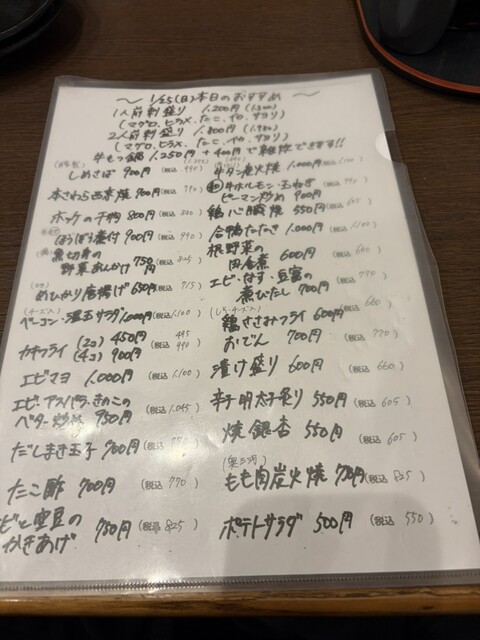 ～ 1/25(日)本日のおすすめ ～
1人前刺盛り 1,200円(1,320)
(マグロ、ヒラメ、たこ、イカ、サヨリ)
2人前刺盛り 1,800円(1,980)
(マグロ、ヒラメ、たこ、イカ、サヨリ)
牛もつ鍋 1,250円 +400円で雑炊できます!!
しめさば 900円(税込 990)
本さわら西京焼 900円(税込 990)
ホッケの干物 800円(税込 880)
ほうぼう煮付 900円(税込 990)
魚切身の
野菜あんかけ 750円(税込 825)
めひかり唐揚げ 650円(税込 715)
(チーズ入)
ベーコン・温玉サラダ 1,000円(税込 1,100)
カキフライ (2コ) 450円 495
(4コ) 900円(税込 990)
エビマヨ 1,000円(税込 1,100)
エビ・アスパラ・きのこの
バター炒め 950円(税込 1,045)
だしまき玉子 900円(税込 990)
たこ酢 700円(税込 770)
えびと空豆の
かきあげ 750円(税込 825)
牛タン炭火焼 1,000円(税込 1,100)
牛ホルモン・玉ねぎ
ピーマン炒め 900円(税込 990)
鶏心臓焼 550円(税込 605)
合鴨たたき 1,000円(税込 1,100)
根野菜の
田舎煮 600円(税込 660)
エビ・なす・豆富の
煮びたし 700円(税込 770)
(しそ・チーズ入)
鶏ささみフライ 600円(税込 660)
おでん 700円(税込 770)
漬け盛り 600円(税込 660)
辛子明太子炙り 550円(税込 605)
焼銀杏 550円(税込 605)
(奥三河)
もも肉炭火焼 750円(税込 825)
ポテトサラダ 500円(税込 550)